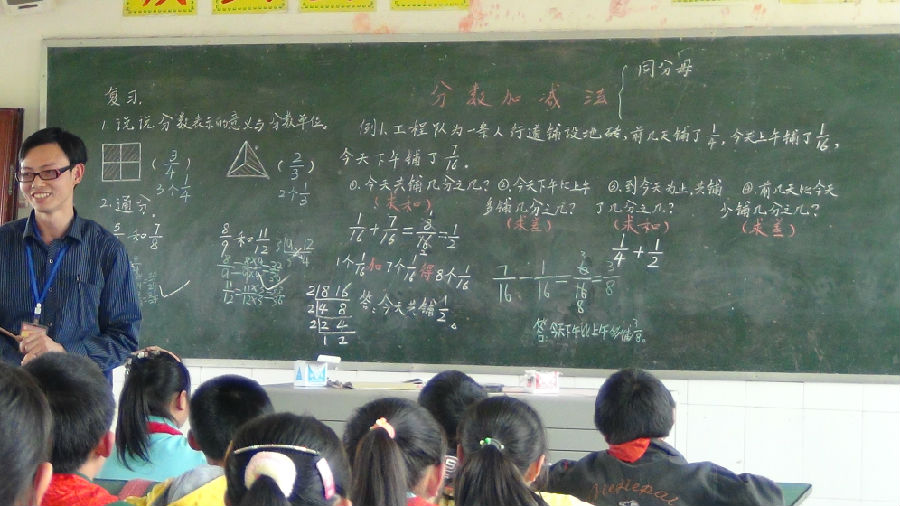 复习.
1.说说分数表示的意义与分数单位。
(3/4)
3个1/4
(2/3)
2个1/3
2.通分.
和7/8
8/9和11/12
8/9=
11/12=
分数加减法
同分母
例1.工程队为一条人行道铺设地砖,前几天铺了1/4,今天上午铺了1/16,
今天下午铺了7/16。
①.今天共铺几分之几?
(求和)
1/16+7/16=8/16=1/2
1个1/16加7个1/16得8个1/16
2 8 16
2 4 8
2 2 4
1 2
答:今天共铺1/2。
②.今天下午比上午
多铺几分之几?
(求差)
7/16-1/16=6/16=3/8
答:今天下午比上午多铺3/8。
③.到今天为止,共铺
了几分之几?
(求和)
1/4+1/2
④.前几天比今天
少铺几分之几?
(求差)